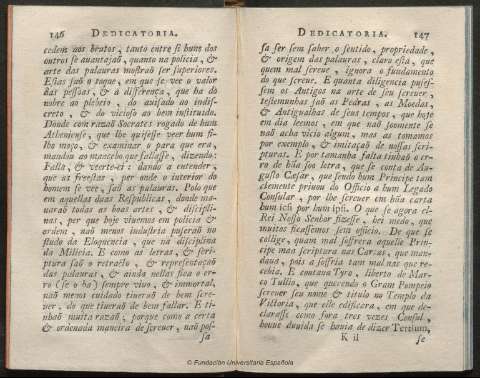 146 DEDICATORIA.
cedem aos brutos, tanto entre si huns dos
outros se auantajaõ, quanto na policia, &
arte das palauras mostraõ ser superiores.
Estas saõ o toque, em que se vee o valor
das pessoas, & a differença, que ha do
nobre ao plebeio, do auisado ao indis-
creto, & do vicioso ao bem instituido.
Donde com razaõ Socrates rogado de hum
Atheniense, que lhe quisesse veer hum fi-
lho moço, & examinar o para que era,
mandou ao mancebo que fallasse, dizendo:
Falla, & veerte-ei: dando a entender,
que as freestas, per onde o interior do
homem se vee, saõ as palauras. Polo que
em aquellas duas Respublicas, donde ma-
naraõ todas as boas artes, & discipli-
nas, per que hoje viuemos em policia &
ordem, naõ menos industria puseraõ no
studo da Eloquencia, que na disciplina
da Milicia. E como as letras, & scri-
ptura saõ o retracto, & representaçaõ
das palauras, & ainda nellas fica o er-
ro (se o ha) sempre viuo, & immortal,
naõ menos cuidado tiueraõ de bem scre-
uer, do que tiueraõ de bem fallar. E ti-
nhaõ muita razaõ; porque como a certa
& ordenada maneira de screuer, naõ pos-
sa
DEDICATORIA. 147
sa ser sem saber o sentido, propriedade,
& origem das palauras, claro está, que
quem mal screue, ignora o fundamento
do que screue. E quanta diligencia puses-
sem os Antigos na arte de seu screuer,
testemunhas saõ as Pedras, as Moedas,
& Antigualhas de seus tempos, que hoje
em dia leemos, em que naõ soomente se
naõ acha vicio algum, mas as tomamos
por exemplo, & imitaçaõ de nossas scri-
pturas. E por tamanha falta tinhaõ o er-
ro de hũa soo letra, que se conta de Au-
gusto Cesar, que sendo hum Principe tam
clemente priuou do Officio a hum Legado
Consular, por lhe screuer em hũa carta
hum ixi por hum ipsi. O que se agora el-
Rei Nosso Senhor fizesse, hei medo, que
muitos ficassemos sem officio. De que se
collige, quam mal soffrera aquelle Prin-
cipe maa scriptura nas Cartas, que man-
daua, pois a soffria tam mal nas que re-
cebia. E contaua Tyro, liberto de Mar-
co Tullio, que querendo o Gram Pompeio
screuer seu nome & titulo no Templo da
Victoria, que elle edificara, em que de-
clarasse como fora tres vezes Consul,
houue duuida se hauia de dizer Tertium,
K ii se
© Fundación Universitaria Española